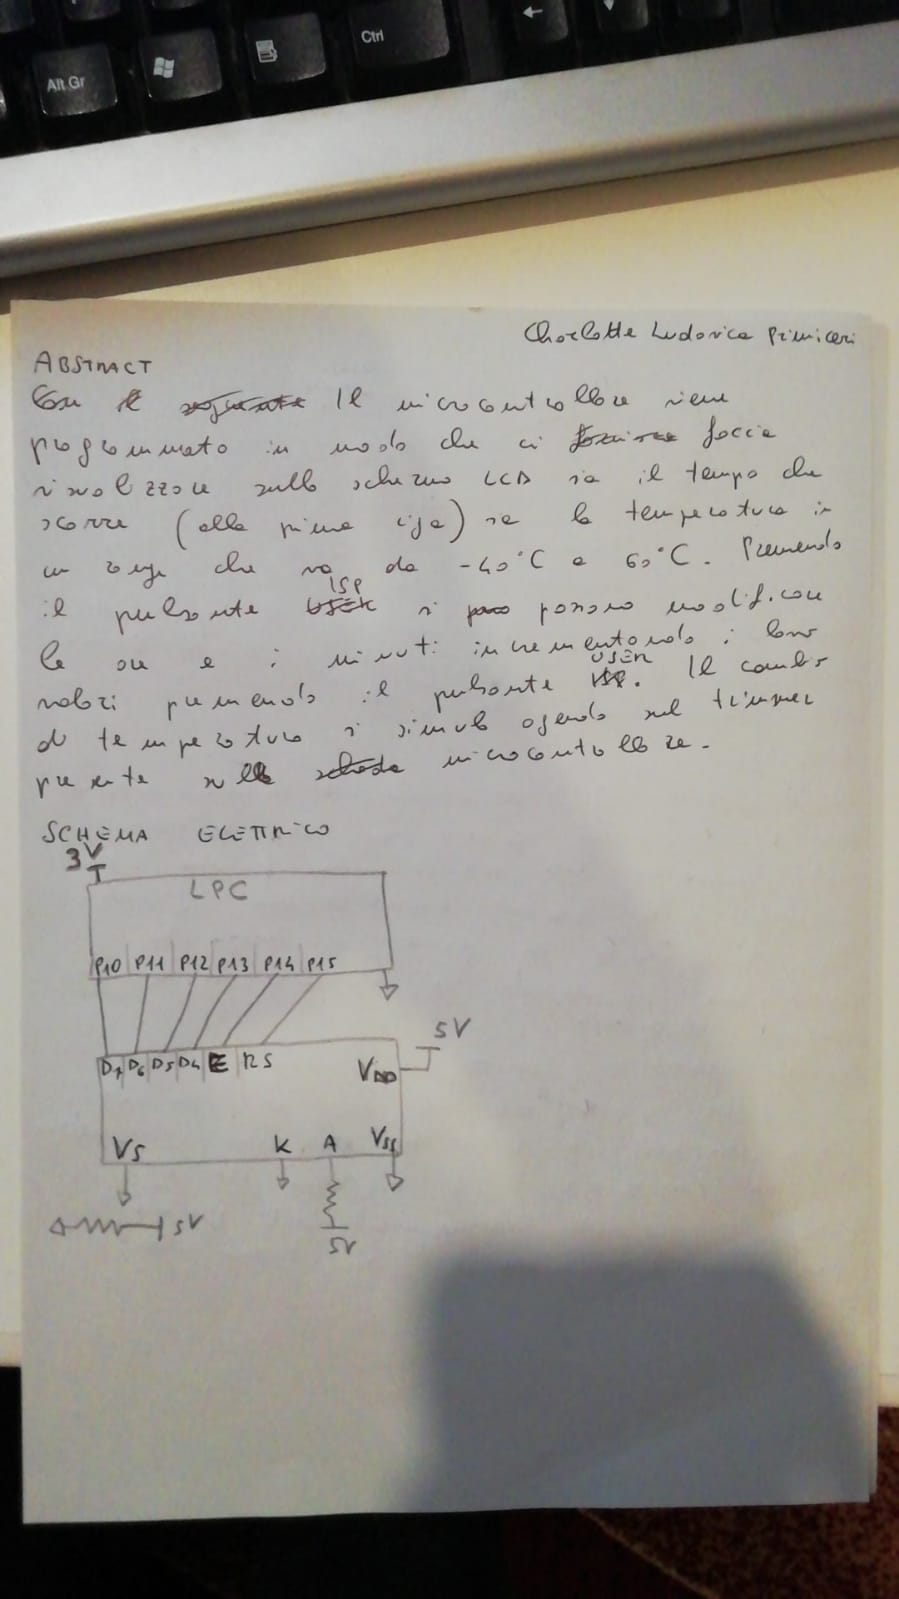 Alt Gr
Ctrl
Charlotte Ludovica Primiceri
ABSTRACT
Con il seguente Il microcontrollore viene
programmato in modo che ci fornisce faccia
visualizzare sullo schermo LCD sia il tempo che
scorre (alla prima riga) sia la temperatura in
un range che va da -40°C a 60°C. Premendo
il pulsante USER ISP si possono modificare
le ore e i minuti incrementando i loro
valori premendo il pulsante ISP. USER Il cambio
di temperatura si simula agendo sul trimmer
presente sulla scheda microcontrollore.
SCHEMA ELETTRICO
3V
LPC
P10 P11 P12 P13 P14 P15
5V
D7 D6 D5 D4 E RS
VDD
VS K A VSS
5V
5V